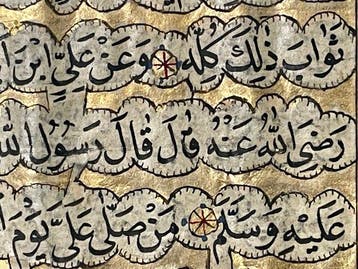 ثَوَابَ ذَلِكَ كُلِّهِ وَعَنْ عَلِيٍّ ابْنَ
رَضِىَ اللّٰهُ عَنْهُ قَالَ قَالَ رَسُولُ
عَلَيْهِ وَسَلَّمَ مَنْ صَلَّى عَلَيَّ يَوْمَ